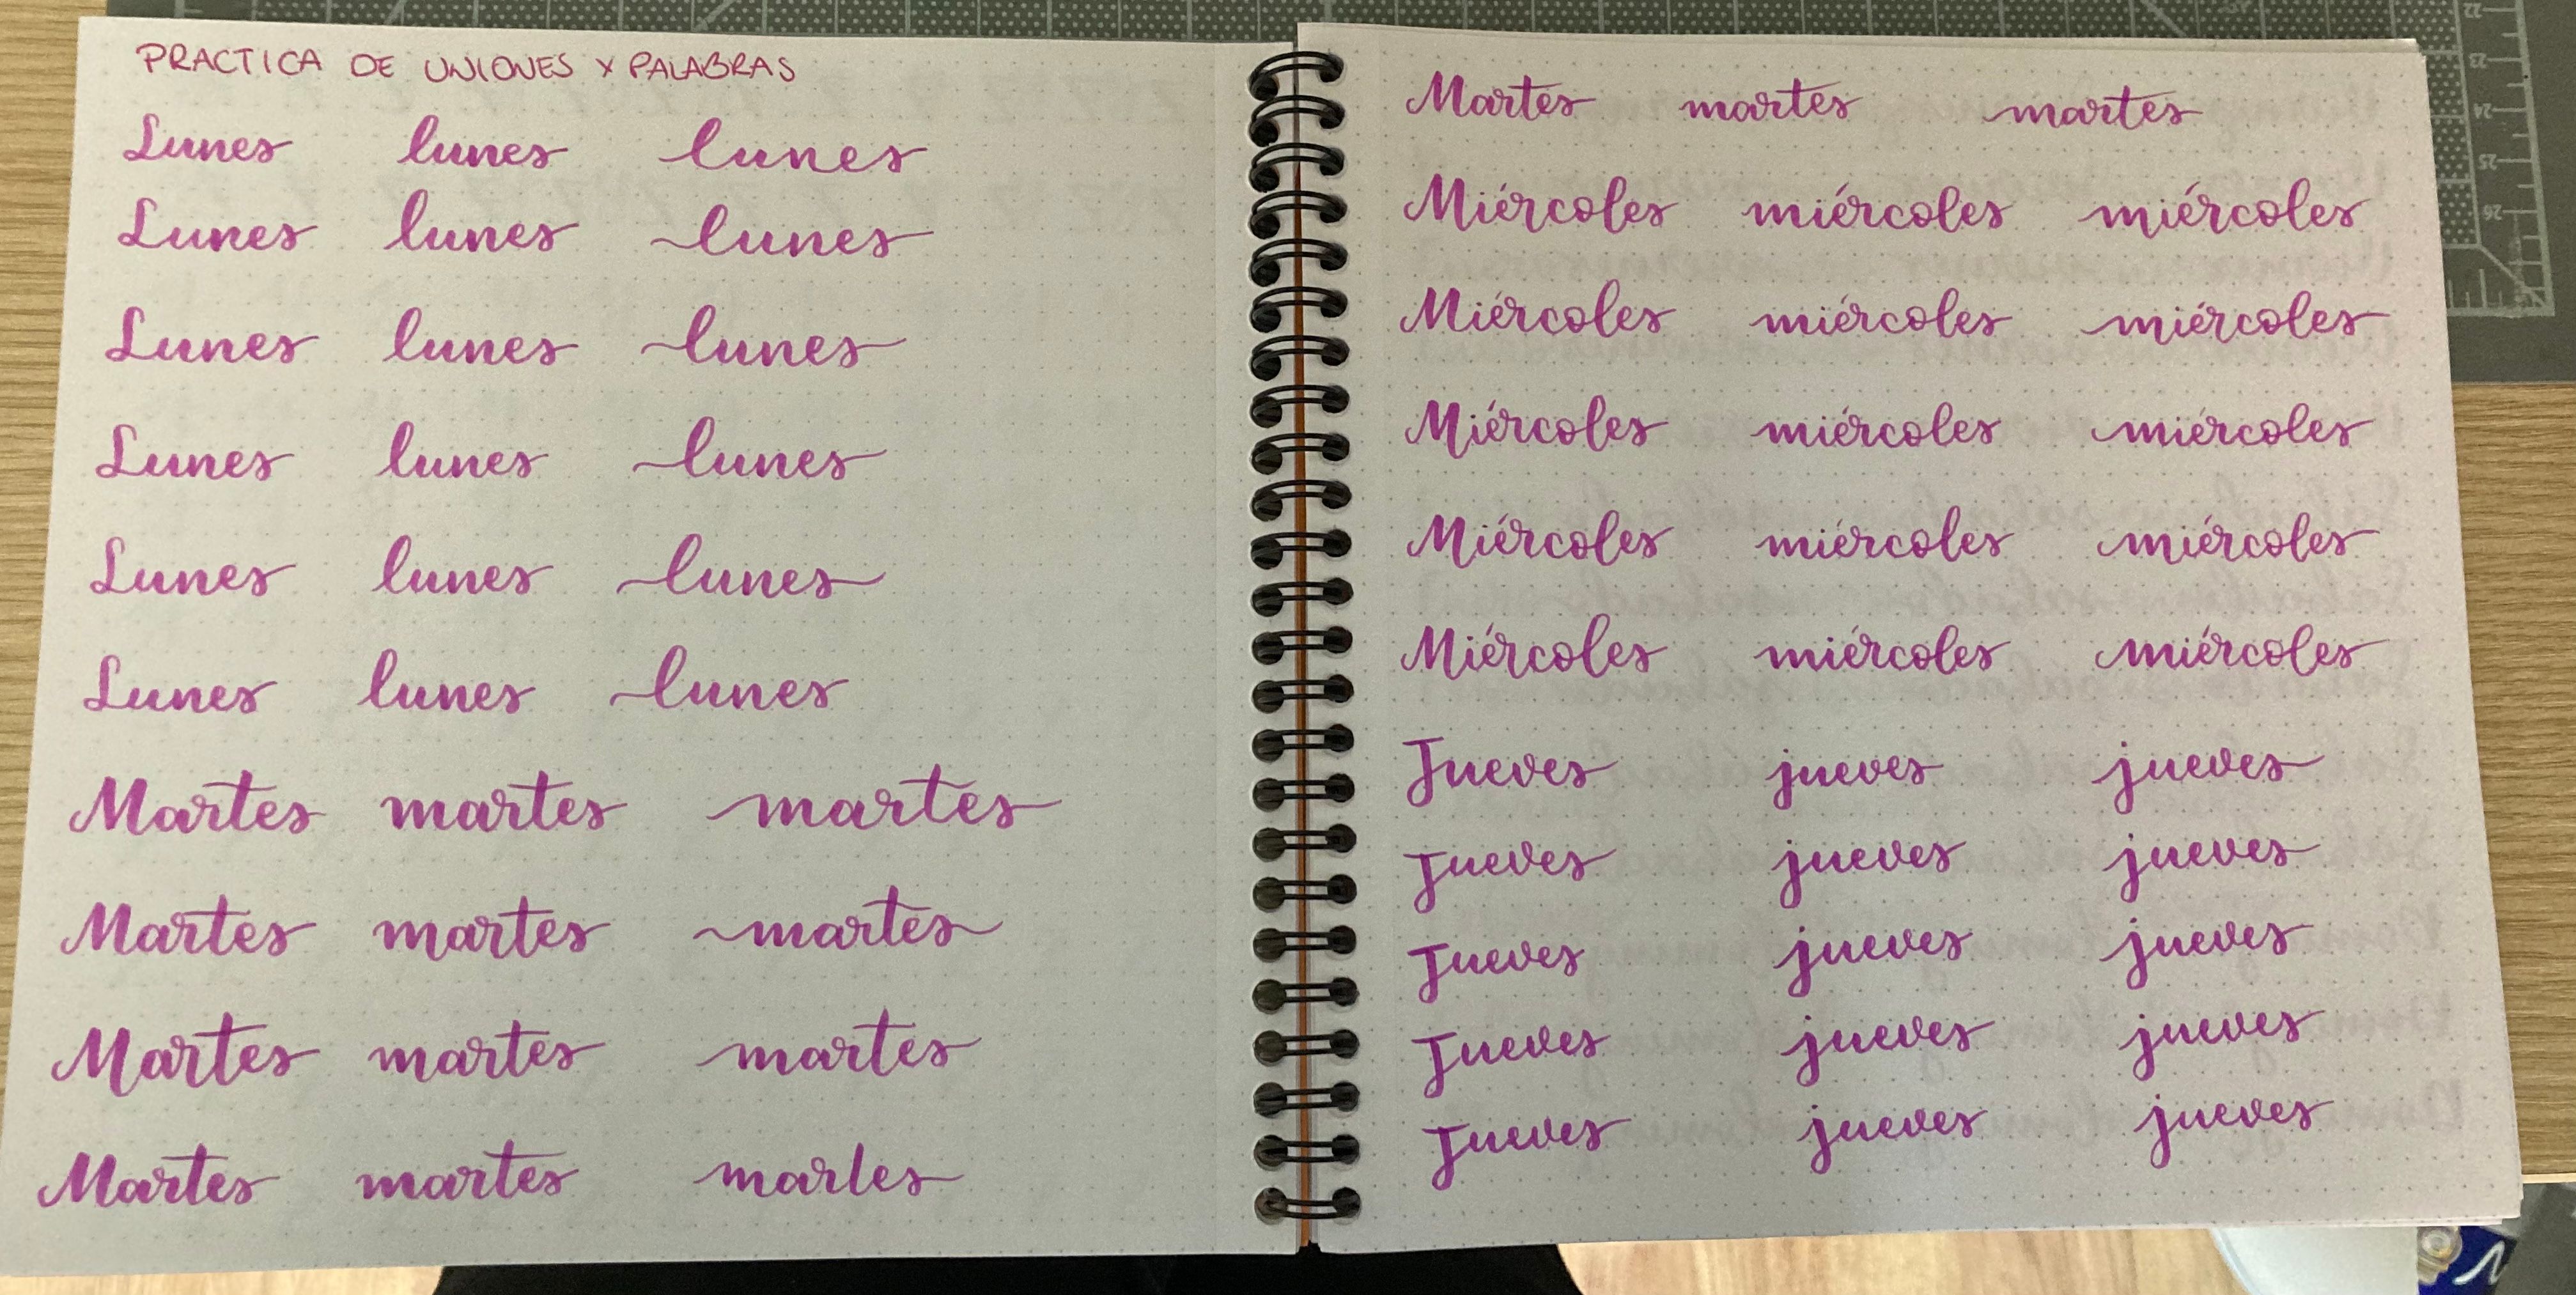 PRACTICA DE UNIONES X PALABRAS
Lunes lunes lunes
Lunes lunes lunes
Lunes lunes lunes
Lunes lunes lunes
Lunes lunes lunes
Lunes lunes lunes
Martes martes martes
Martes martes martes
Martes martes martes
Martes martes marles
Martes martes martes
Miércoles miércoles miércoles
Miércoles miércoles miércoles
Miércoles miércoles miércoles
Miércoles miércoles miércoles
Miércoles miércoles miércoles
Jueves jueves jueves
Jueves jueves jueves
Jueves jueves jueves
Jueves jueves jueves
Jueves jueves jueves
22
23
24
25
26